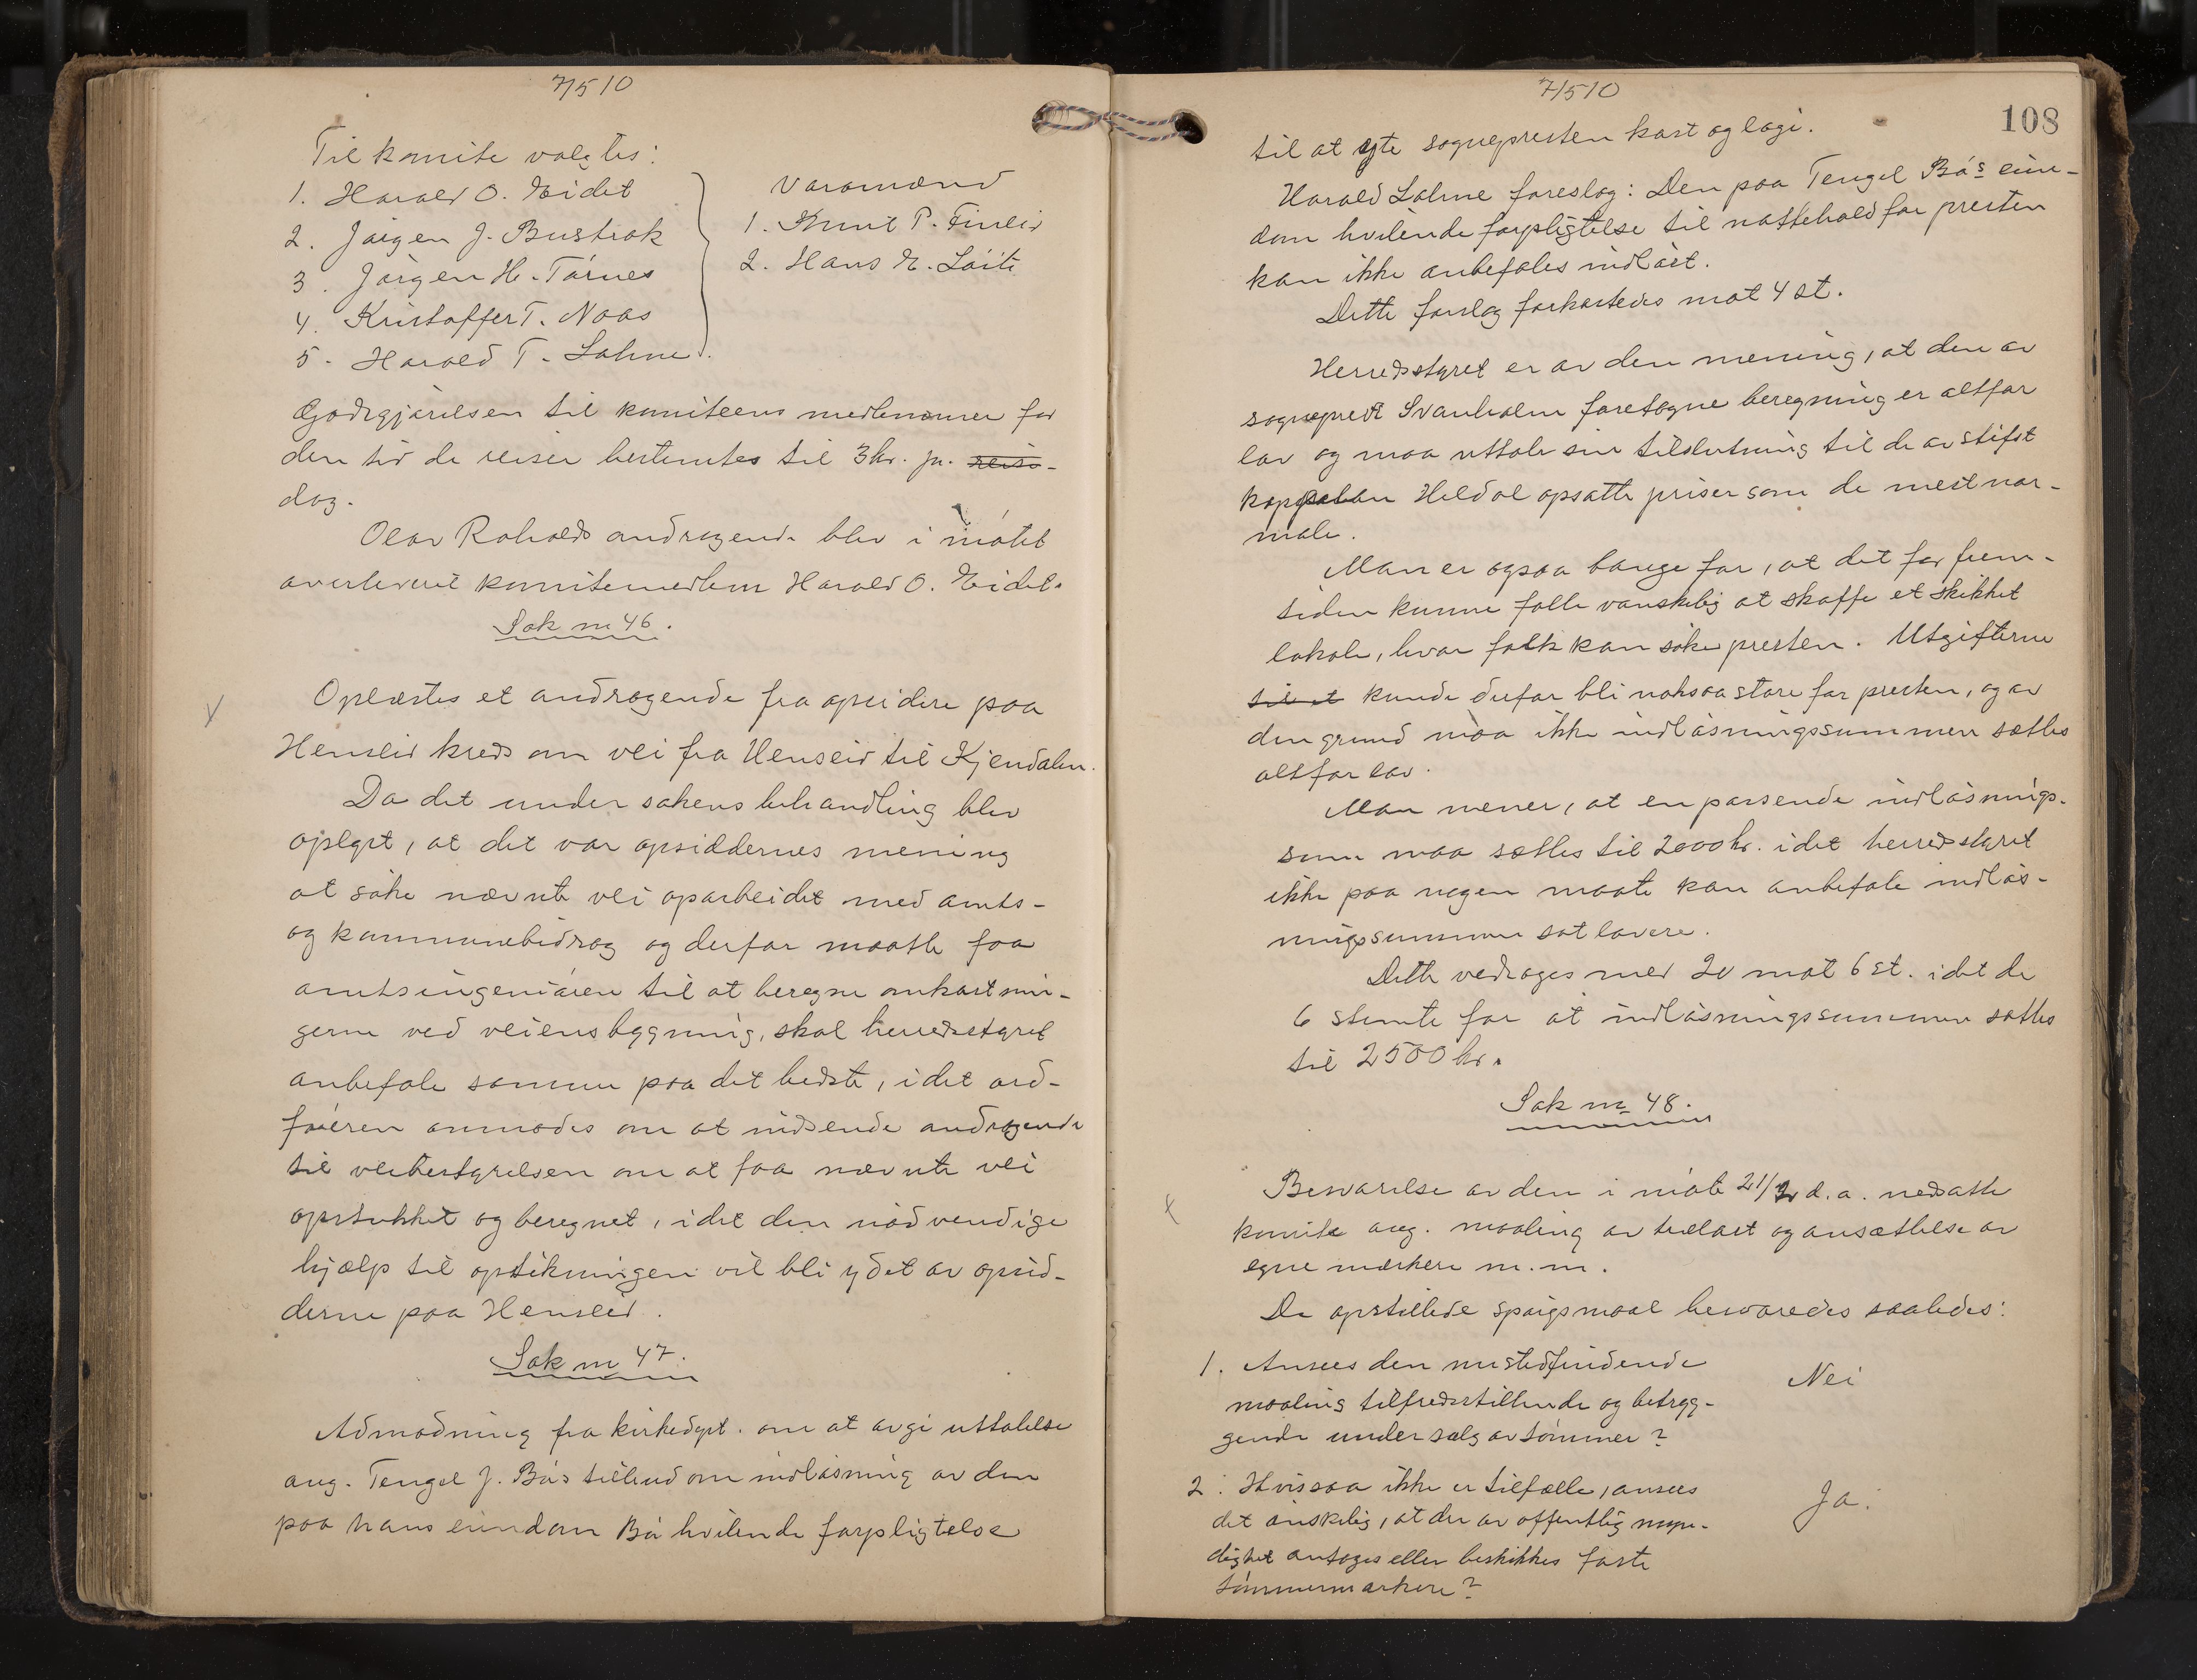 7/5 10
Til komite valgtes:
1. Harald O. Eidet
2. Jørgen J. Bustrak
3. Jørgen H. Tørnes
4. Kristoffer T. Naas
5. Harald T. Lahne.
Varamænd
1. Knut P. Fineid
2. Hans E. Løite
Godtgjørelsen til komiteens medlemmer for
den tid de reiser bestemtes til 3 kr. pr. reise-
dag.
Olav Roholds andragende blev i møtet
overleveret komitemedlem Harald O. Eidet.
Sak nr 46.
Oplæstes et andragende fra opsidere paa
Henseid kreds om vei fra Henseid til Kjendalen.
Da det under sakens behandling blev
oplyst, at det var opsiddernes mening
at søke nævnte vei oparbeidet med amts-
og kommunebidrag og derfor maatte faa
amtsingeniøren til at beregne omkostnin-
gerne ved veiens bygning, skal herredsstyret
anbefale samme paa det bedste, idet ord-
føreren anmodes om at indsende andragende
til veibestyrelsen om at faa nævnte vei
opstukket og beregnet, idet den nødvendige
hjælp til opstikningen vil bli ydet av opsid-
derne paa Henseid.
Sak nr 47.
Admodning fra kirkedept. om at avgi uttalelse
ang. Tengel J. Bøs tilbud om indløsning av den
paa hans eiendom Bø hvilende forpligtelse
7/5 10
108
til at yte sognepresten kost og logi.
Harald Lahne foreslog: Den paa Tengel Bø's eien-
dom hvilende forpligtelse til nattehold for presten
kan ikke anbefales indløst.
Dette forslag forkastedes mot 4 st.
Herredsstyret er av den mening, at den av
sogneprest Svanholm foretagne beregning er altfor
lav og maa uttale sin tilslutning til de av stifts
kappelan Heldal opsatte priser som de mest nor-
male.
Man er ogsaa bange for, at det for frem-
tiden kunne falle vanskelig at skaffe et skikket
lokale, hvor folk kan søke presten. Utgifterne
til et kunde derfor bli noksaa store for presten, og av
den grund maa ikke indløsningssummen sættes
altfor lav.
Man mener, at en passende indløsnings-
sum maa sættes til 2000 kr. idet herredsstyret
ikke paa nogen maate kan anbefale indløs-
ningssummen sat lavere.
Dette vedtoges med 20 mot 6 st. idet de
6 stemte for at indløsningssummen sattes
til 2500 kr.
Sak nr 48.
Besvarelse av den i møte 21/2 d.a. nedsatte
komite ang. maaling av trælast og ansættelse av
egne mærkere m.m.
De opstillede spørgsmaal besvaredes saaledes:
1. Ansees den nustedfindende
maaling tilfredsstillende og betryg-
gende under salg av tømmer?
Nei
2. Hvis saa ikke er tilfælle, ansees
det ønskelig, at der av offentlig myn-
dighet antages eller beskikkes faste
tømmermærkere?
Ja.